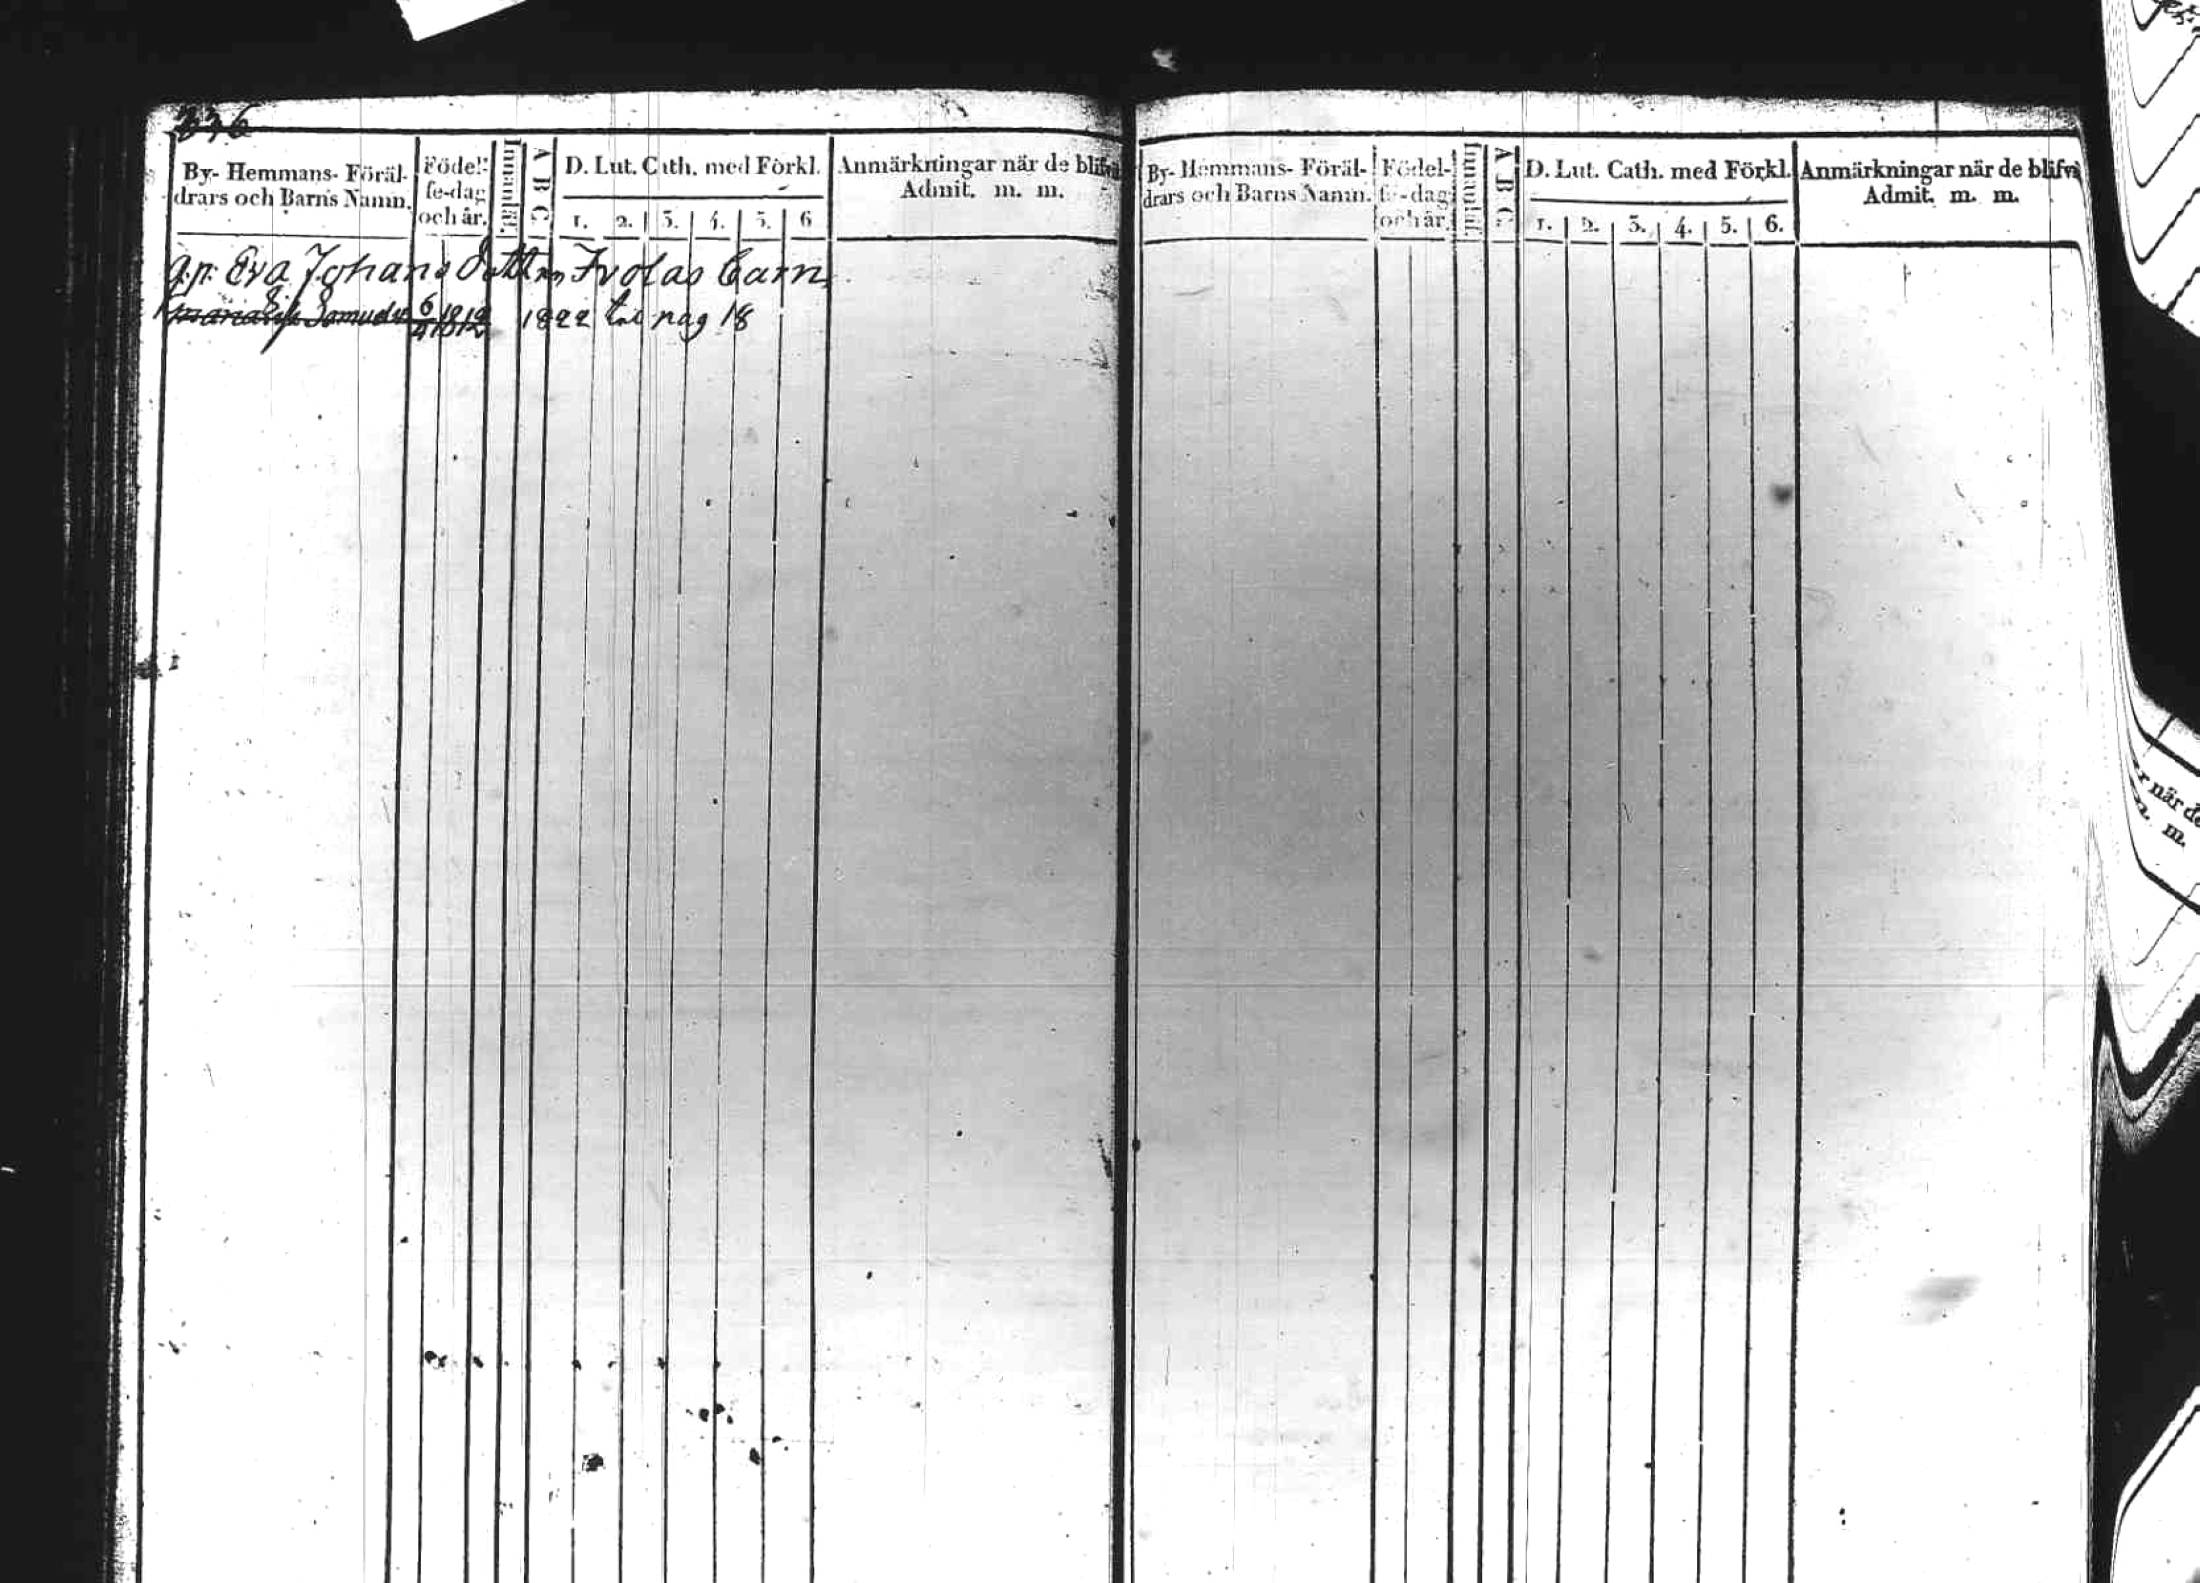 236
By- Hemmans- Föräl-
drars och Barns Namn.
Födel-
se-dag
och år.
Innanläf.
A B C
D. Lut. Cath. med Förkl.
1. 2. 3. 4. 5. 6
Anmärkningar när de blifvit
Admit. m. m.
q.p. Eva Johans dotters Barn
Maria Samuels 6 1812 1822 pag 18
By- Hemmans- Föräl-
drars och Barns Namn.
Födel-
se-dag
och år.
Innanläf.
A B C
D. Lut. Cath. med Förkl.
1. 2. 3. 4. 5. 6.
Anmärkningar när de blifvit
Admit. m. m.
r när de
m. m.